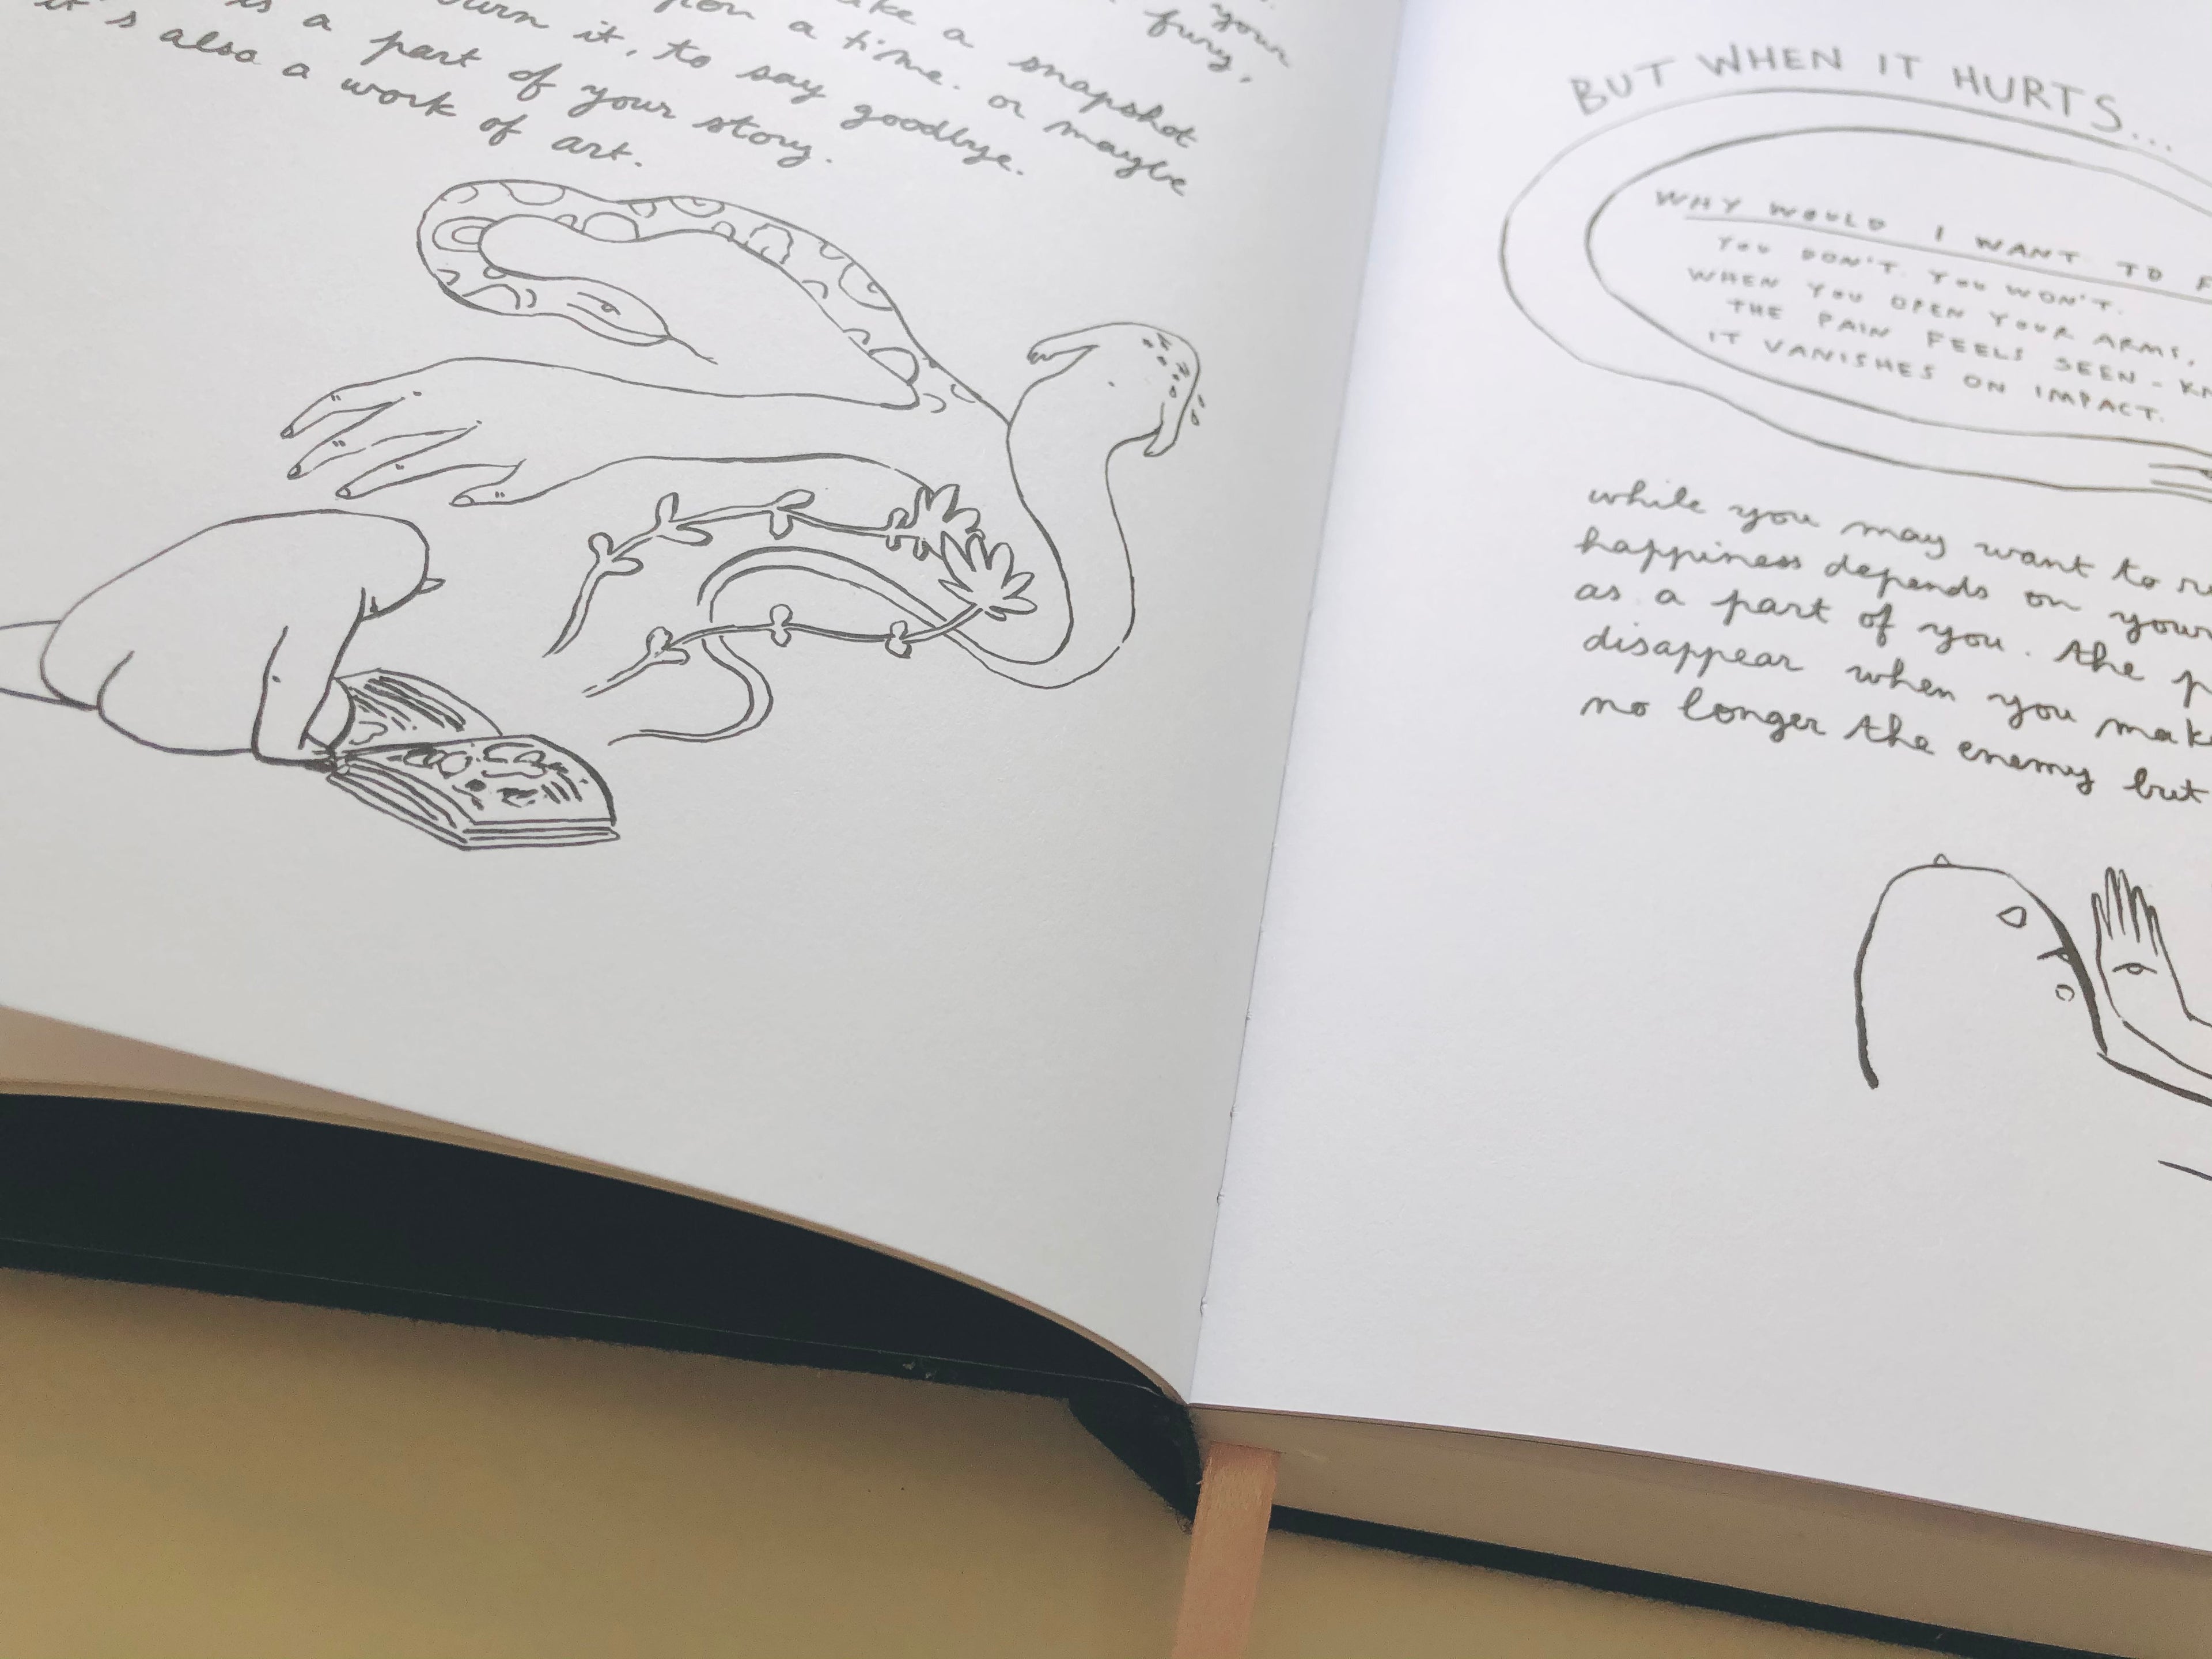 your
fury,
a snapshot
a time. or maybe
burn it, to say goodbye.
is a part of your story.
it's also a work of art.
BUT WHEN IT HURTS...
WHY WOULD I WANT TO
YOU DON'T. YOU WON'T.
WHEN YOU OPEN YOUR ARMS,
THE PAIN FEELS SEEN -
IT VANISHES ON IMPACT.
while you may want to
happiness depends on
as a part of you. the
disappear when you
no longer the enemy but